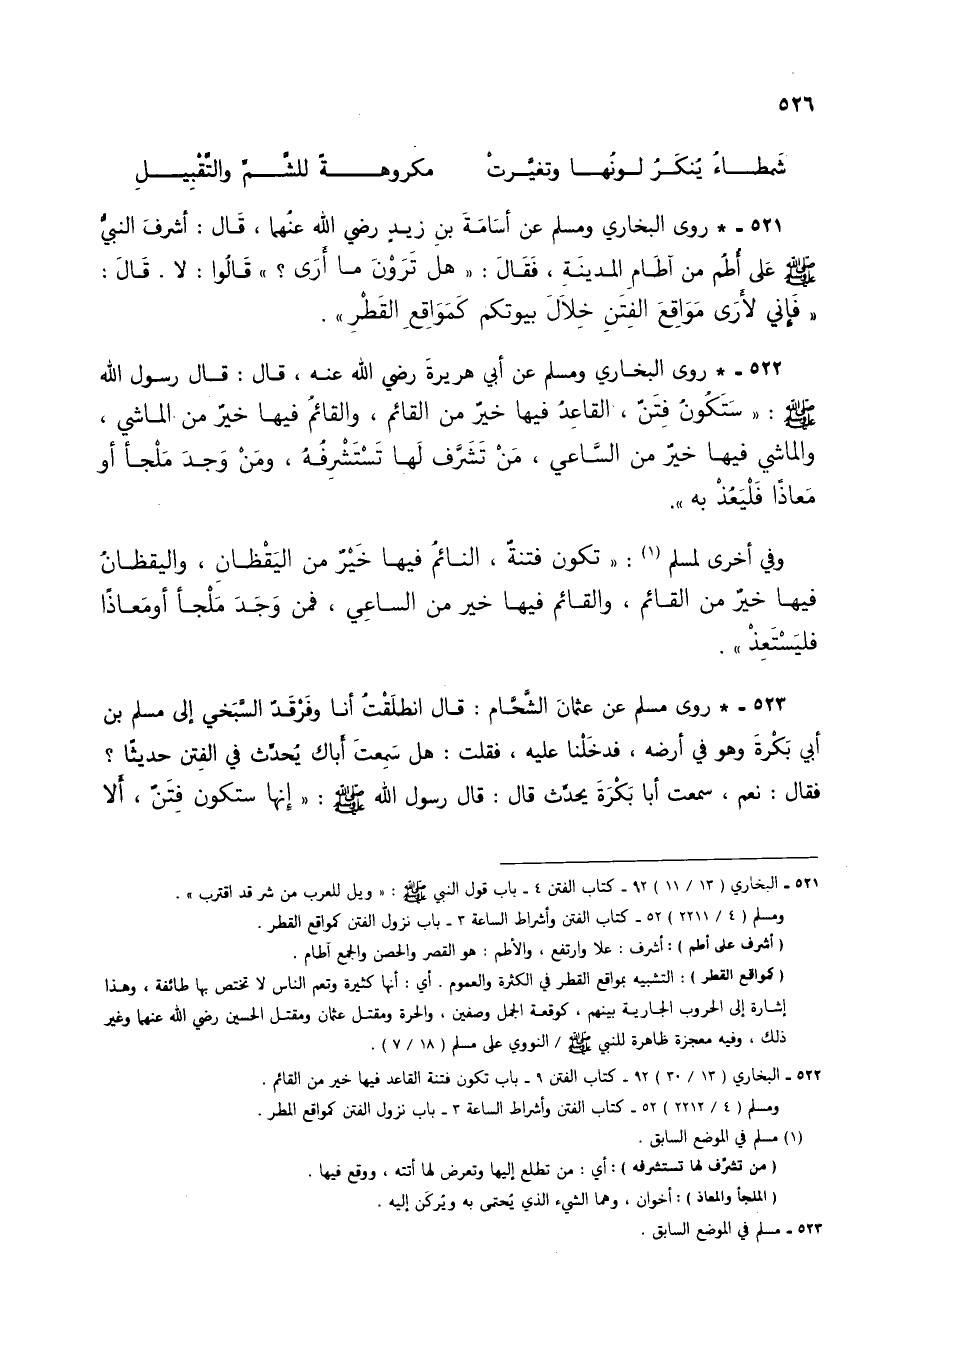 ٥٢٦
شَمطــاءُ يُنكَــرُ لــونُهــا وتغيَّــرتْ مكروهــــةً للشَّــمِّ والتَّقْبِيــلِ
٥٢١ - * روى البخاري ومسلم عن أسَامَةَ بنِ زيدٍ رضي الله عنُهما ، قَال : أشرفَ النبيُّ
ﷺ عَلى أُطُمٍ من آطَامِ المدينَةِ ، فَقَالَ : « هل تَرَوْنَ مـا أَرَى ؟ » قَـالُوا : لا . قَـالَ :
« فَإِني لأَرَى مَوَاقِعَ الفِتَنِ خِلالَ بيوتكم كَمَوَاقِعِ القَطْرِ » .
٥٢٢ - * روى البخـاري ومسلم عن أبي هريرةَ رضي الله عنـه ، قال : قـال رسول الله
ﷺ : « سَتَكُونُ فِتَنٌ ، القاعدُ فيها خيرٌ من القائم ، والقائمُ فيهـا خيرٌ من المـاشي ،
والماشي فيهـا خيرٌ من السَّاعي ، مَنْ تَشَرَّف لَهـا تَسْتَشْرِفُـهُ ، ومَنْ وَجـدَ مَلْجـأً أو
مَعاذًا فَلْيَعُذْ به ».
وفي أخرى لمسلم (١) : « تكون فتنةٌ ، النـائمُ فيهـا خَيْرٌ من اليَقْظَـانِ ، واليقظـانُ
فيهـا خيرٌ من القـائم ، والقـائم فيهـا خير من السـاعِي ، فمن وَجَـدَ مَلْجـأ أومَعـاذًا
فليَسْتَعِذْ » .
٥٢٣ - * روى مسلم عن عثمانَ الشَّحَّام : قـال انطلَقْتُ أنـا وفَرْقَـدٌ السَّبَخي إلى مسلم بن
أبي بَكْرةَ وهو في أرضه ، فدخَلْنا عليه ، فقلت : هل سَمِعتَ أَباك يُحدِّث في الفتن حديثًا ؟
فقال : نعم ، سمعت أبا بَكْرَةَ يحدِّث قال : قال رسول الله ﷺ : « إِنها ستكون فِتَنٌ ، أَلا
٥٢١ - البخاري ( ١٣ / ١١ ) ٩٢ - كتاب الفتن ٤ - باب قول النبي ﷺ : « ويل للعرب من شر قد اقترب » .
ومسلم ( ٤ / ٢٢١١ ) ٥٢ - كتاب الفتن وأشراط الساعة ٣ - باب نزول الفتن كمواقع القطر .
( أشرف على أطم ) : أشرف : علا وارتفع ، والأطم : هو القصر والحصن والجمع آطام .
( كمواقع القطر ) : التشبيه بمواقع القطر في الكثرة والعموم . أي : أنها كثيرة وتعم الناس لا تختص بها طائفة ، وهـذا
إشـارة إلى الحروب الجـاريـة بينهم ، كوقعـة الجمل وصفين ، والحرة ومقتـل عثمان ومقتـل الحسين رضي الله عنهما وغير
ذلك ، وفيه معجزة ظاهرة للنبي ﷺ / النووي على مسلم ( ١٨ / ٧ ) .
٥٢٢ - البخاري ( ١٣ / ٣٠ ) ٩٢ - كتاب الفتن ٩ - باب تكون فتنة القاعد فيها خير من القائم .
ومسلم ( ٤ / ٢٢١٢ ) ٥٢ - كتاب الفتن وأشراط الساعة ٣ - باب نزول الفتن كمواقع المطر .
(١) مسلم في الموضع السابق .
( من تشرَّف لها تستشرفه ) : أي : من تطلع إليها وتعرض لها أتته ، ووقع فيها .
( الملجأ والمعاذ ) : أخوان ، وهما الشيء الذي يُحتمى به ويُركَن إليه .
٥٢٣ - مسلم في الموضع السابق .